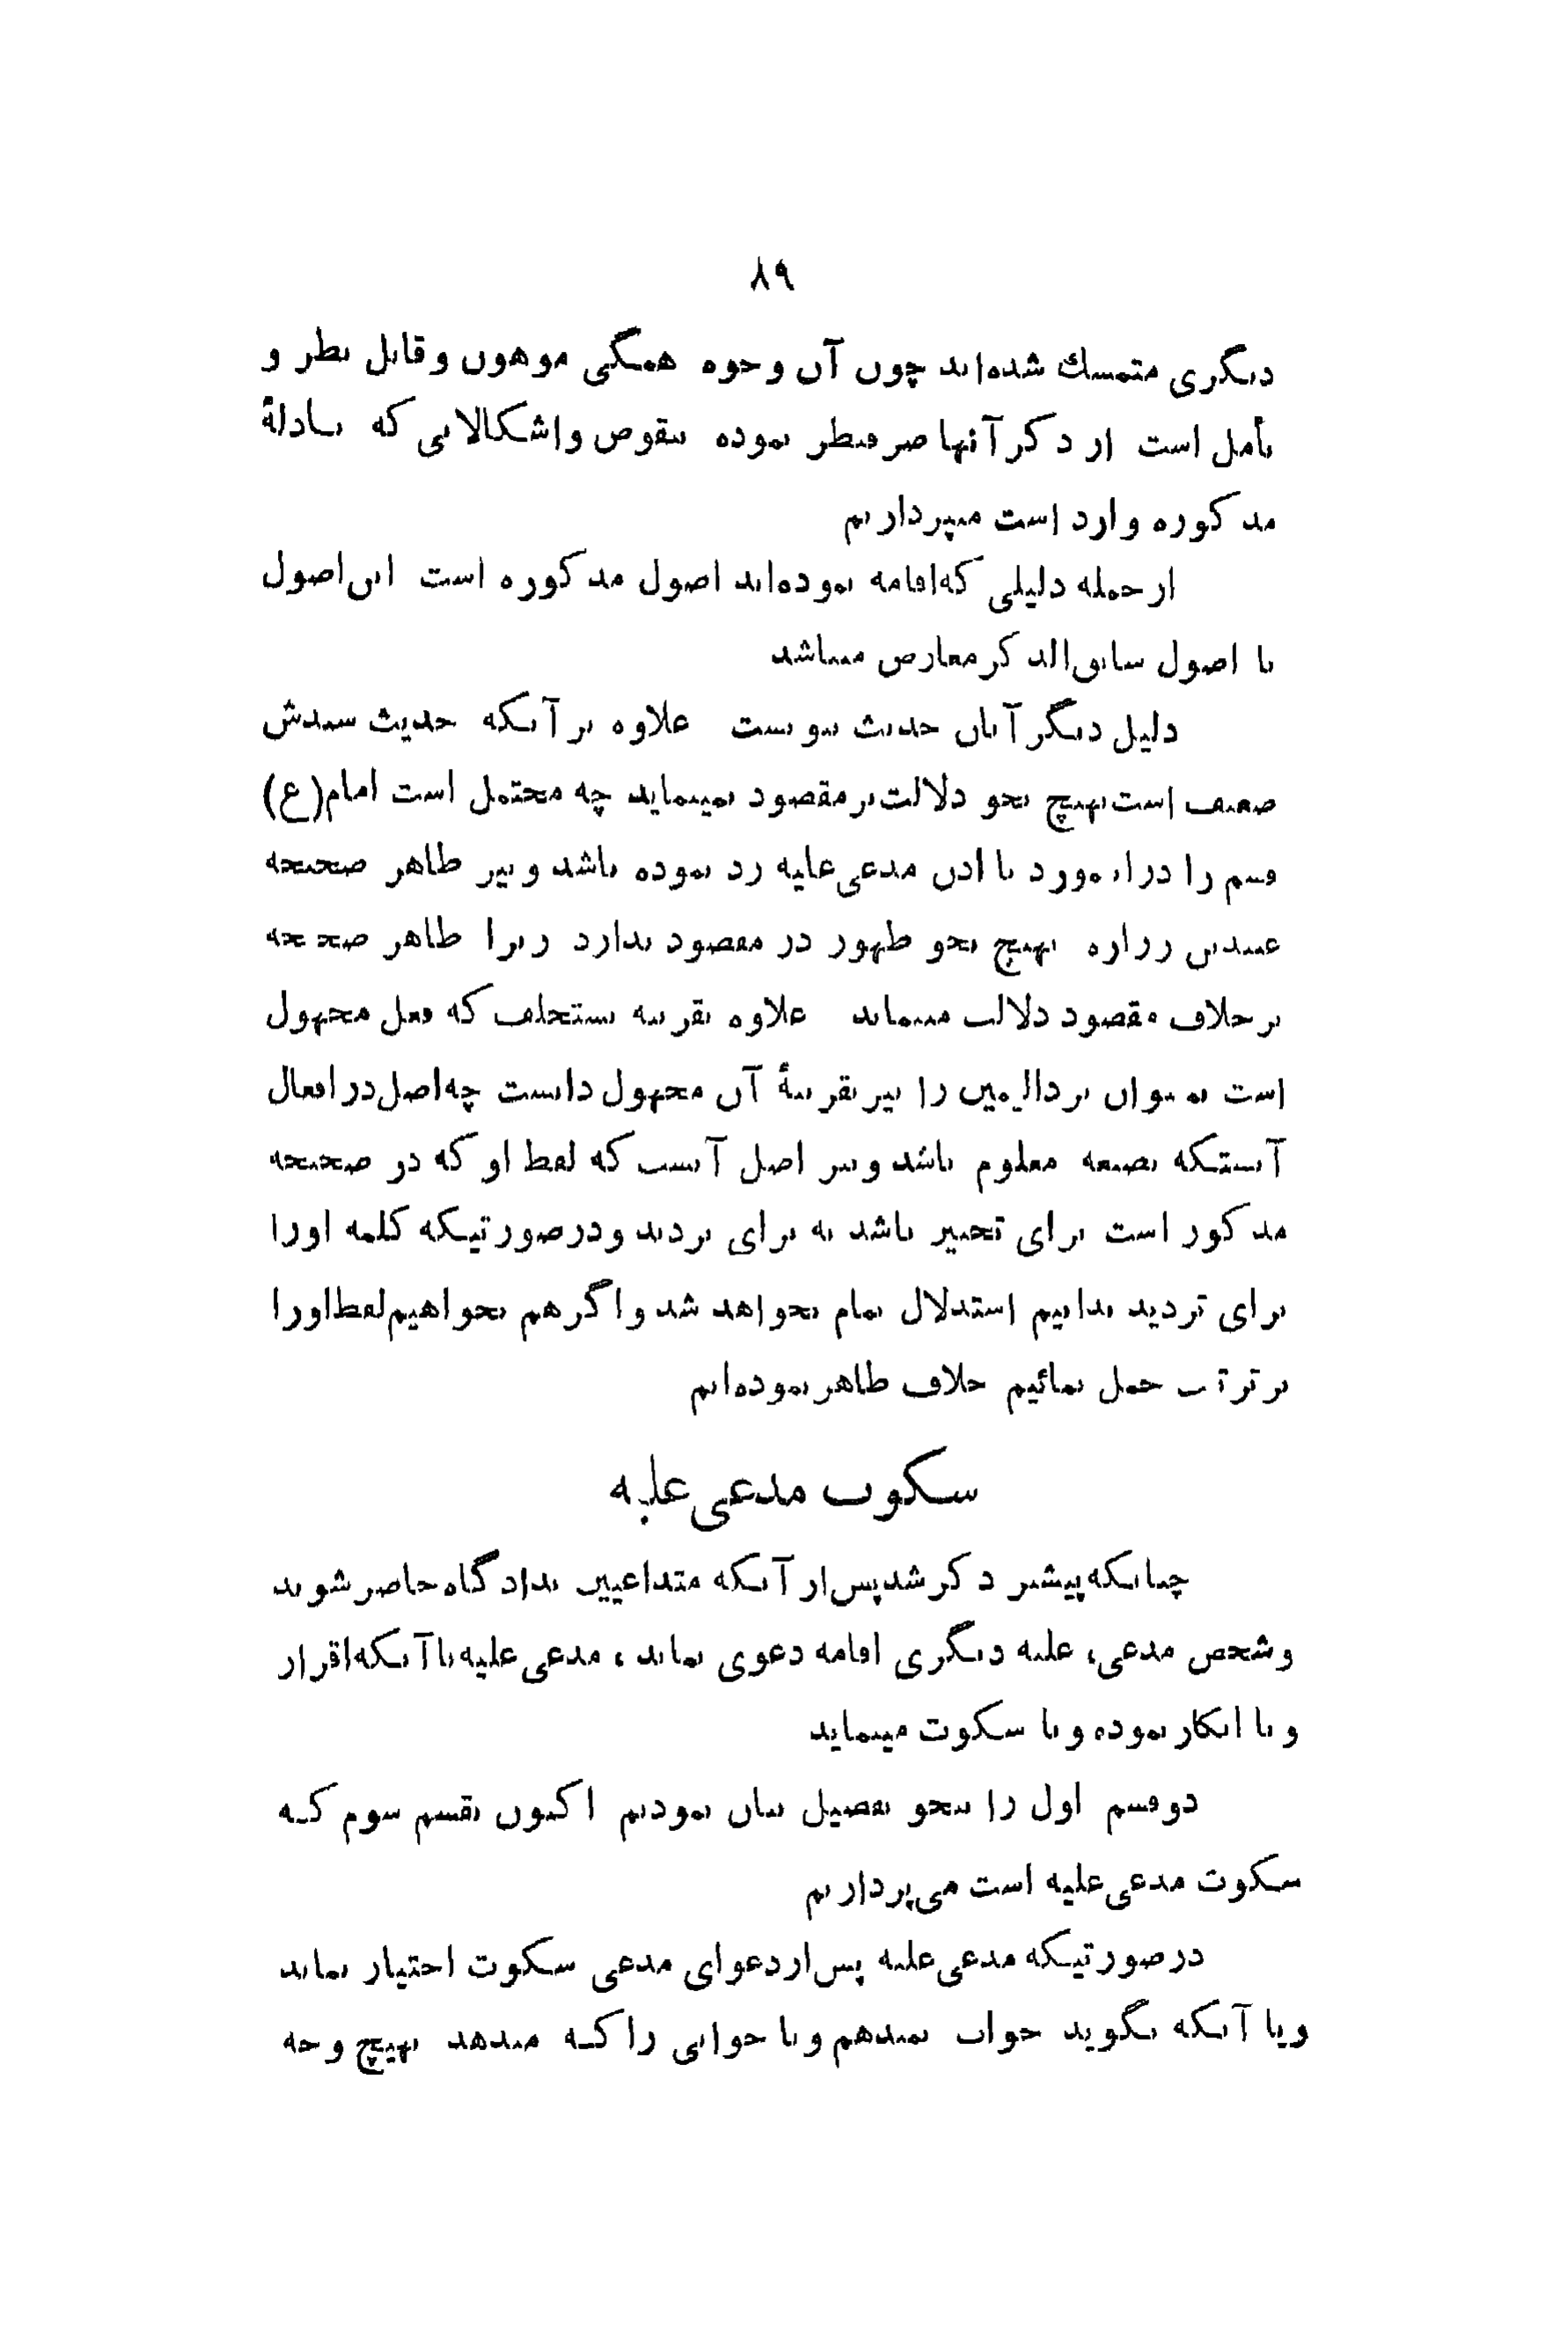 ۸۹
دیگری متمسک شده‌اند چون آن وجوه همگی موهون و قابل نظر و
تأمل است از ذکر آنها صرفنظر نموده بنقوض و اشکالاتی که بادلهٔ
مذکوره وارد است میپردازیم
از جمله دلیلی که اقامه نموده‌اند اصول مذکوره است این اصول
با اصول سابق‌الذکر معارض میباشد
دلیل دیگر آنان حدیث نبویست علاوه بر آنکه حدیث سندش
ضعیف است بهیچ نحو دلالت بر مقصود نمینماید چه محتمل است امام (ع)
قسم را در این مورد با اذن مدعی‌علیه رد نموده باشد و نیز ظاهر صحیحه
عبیدبن زراره بهیچ نحو ظهور در مقصود ندارد زیرا ظاهر صحیحه
بر خلاف مقصود دلالت مینماید علاوه بقرینه یستحلف که فعل مجهول
است میتوان یردالیمین را نیز بقرینهٔ آن مجهول دانست چه اصل در افعال
آنستکه بصیغه معلوم باشد و نیز اصل آنست که لفظ او که در صحیحه
مذکور است برای تخییر باشد نه برای تردید و درصورتیکه کلمه او را
برای تردید بدانیم استدلال تمام نخواهد شد و اگر هم بخواهیم لفظ او را
بر ترتیب حمل نمائیم خلاف ظاهر نموده‌ایم
سکوت مدعی‌علیه
چنانکه پیشتر ذکر شد پس از آنکه متداعیین بدادگاه حاضر شوند
و شخص مدعی، علیه دیگری اقامه دعوی نماید، مدعی‌علیه یا آنکه اقرار
و یا انکار نموده و یا سکوت مینماید
دو قسم اول را بنحو تفصیل بیان نمودیم اکنون بقسم سوم که
سکوت مدعی‌علیه است می‌پردازیم
درصورتیکه مدعی‌علیه پس از دعوای مدعی سکوت اختیار نماید
و یا آنکه بگوید جواب نمیدهم و یا جوابی را که میدهد بهیچ وجه